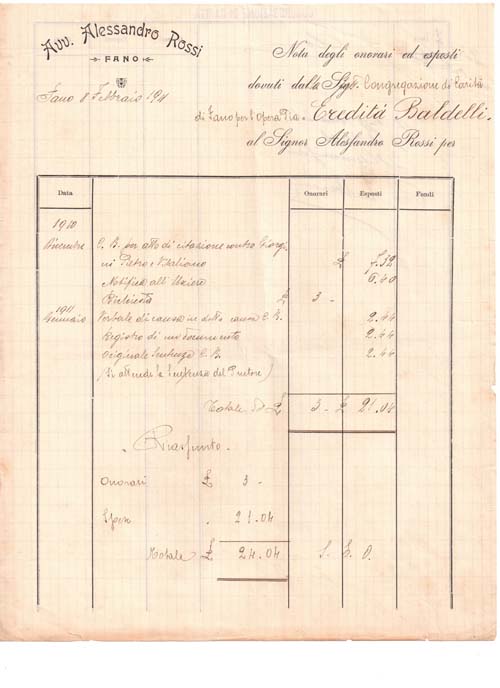 Avv. Alessandro Rossi
FANO
Fano 8 Febbraio 1911
Nota degli onorari ed esposti
dovuti dalla Sig. Congregazione di Carità
di Fano per l'Opera Pia "Eredità Baldelli"
al Signor Alessandro Rossi per
Data Onorari Esposti Fondi
1910
Dicembre C. B. per atto di citazione contro Giorgi
ni Pietro e Italiano £ 7.32
Notifica all'Usciere 6.40
Richiesta £ 3 -
1911
Gennaio Verbale di causa in detta causa C. B. 2.44
Registro di un documento 2.44
Originale Sentenza C. B. 2.44
(Si attende la Sentenza del Pretore)
Totale £ 3 - £ 21.04
Riassunto.
Onorari £ 3 -
Spese " 21.04
Totale £ 24.04 S. E. O.